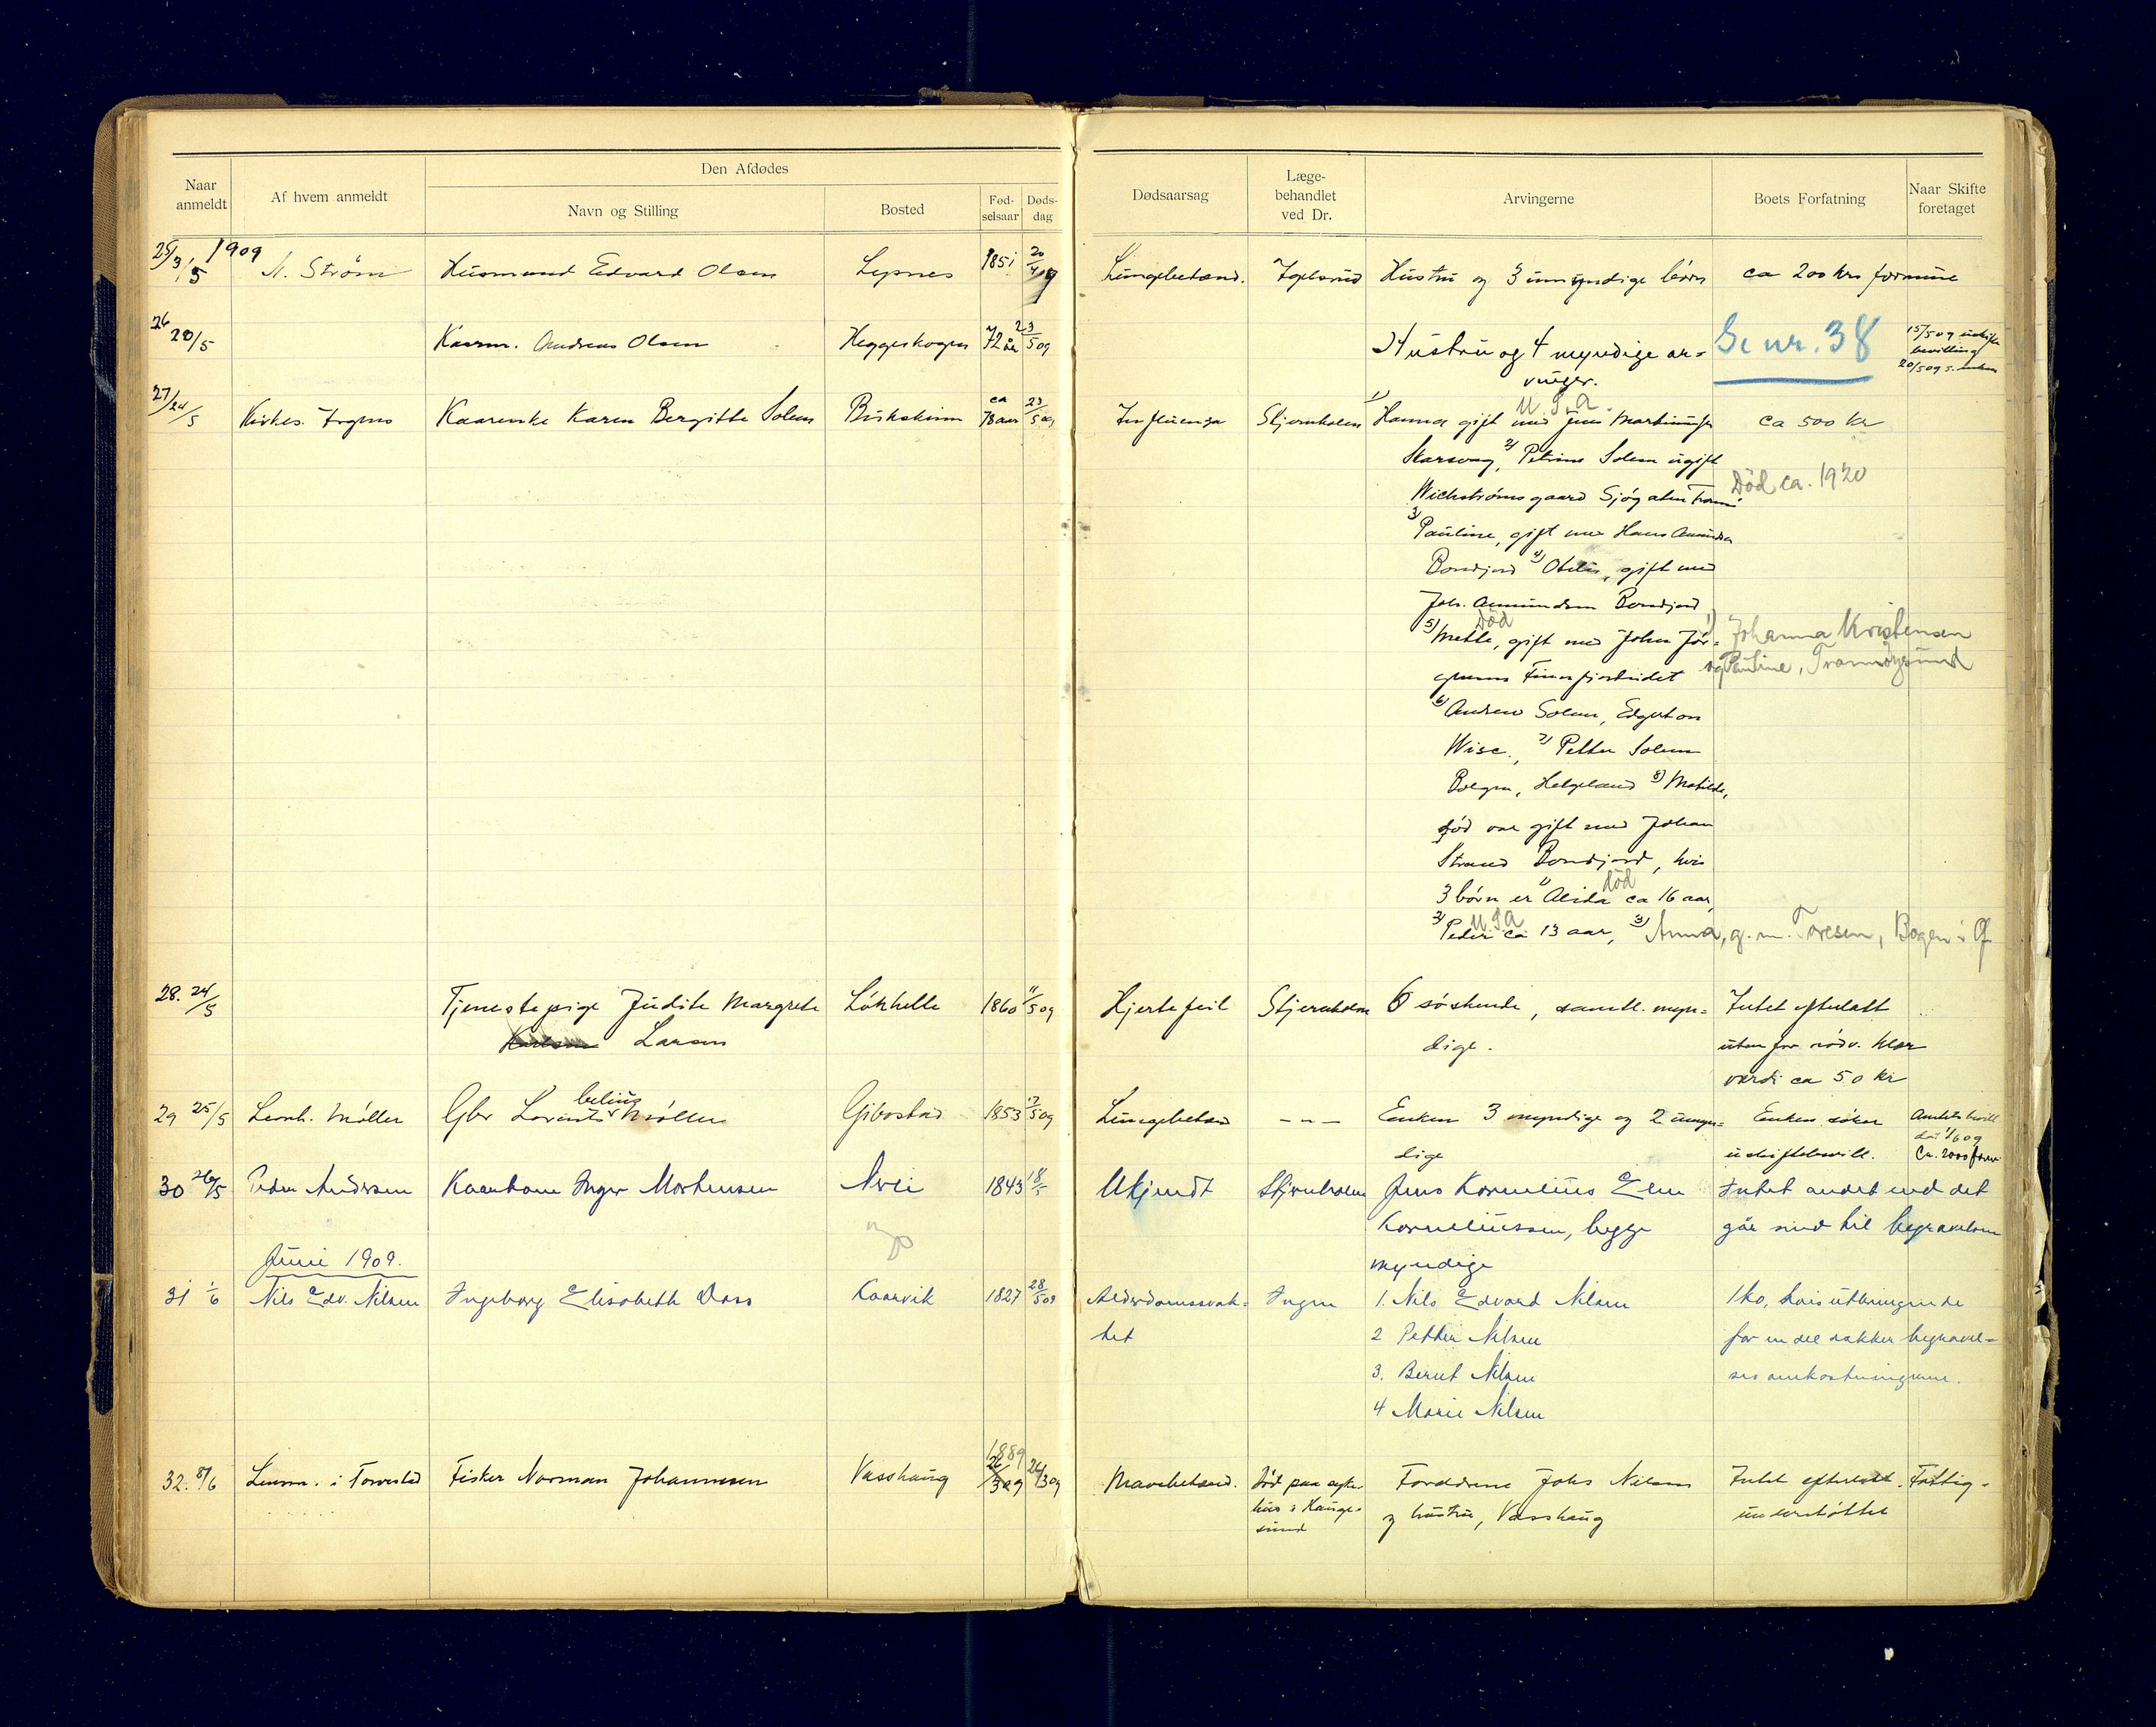 Naar anmeldt
Af hvem anmeldt
Den Afdødes
Navn og Stilling
Bosted
Fød-selsaar
Døds-dag
Dødsaarsag
Læge-behandlet ved Dr.
Arvingerne
Boets Forfatning
Naar Skifte foretaget
25/ 3/5 1909
N. Strøm
Husmand Edvard Olsen
Lysnes
1851
20/4 09
Lungebetænd.
Hustru og 3 umyndige børn
ca 200 kr formue
26 20/5
Kaarm. Andreas Olsen
Heggeskogen
72 år
23/5 09
Hustru og 4 myndige ar=
vinger.
Se nr. 38
15/5 09 uskifte
bevilling
20/5 09
27/ 24/5
Kirkes.
Kaarenke Karen Bergitte Solem
Bukskinn
ca 78 aar
23/5 09
Influenza
Stjernholm
U.S.A.
1) Hanna gift med Jens Martinussen
ca 500 kr
Skarsvaag, 2) Petrine Solem ugift
Død ca. 1920
Wichstrømsgaard Sjøgaten Tromsø
3) Pauline, gift med Hans Amundsen
Bondjord 4) Otelie, gift med
Joh. Amundsen Bondjord
Død
5) Mette, gift med Johan Jør=
gensen Finfjordeidet
1) Johanna Kristensen
og Pauline, Tranøysund
6) Andrew Solem, Edgerton
Wisc., 7) Petter Solem
Bolgen, Helgeland 8) Matilde,
død var gift med Johan
Strand Bondjord, hvis
død
3 børn er 1) Alida ca 16 aar,
U.S.A
2) Peder ca 13 aar, 3) Anna, g. m. Toresen, Bogen i Of.
28. 24/5
Tjenestepige Judith Margrete
Larsen
Løkhelle
1860
11/5 09
Hjertefeil
Stjernholm
6 søskende, samtl. myn=
dige.
Intet efterlatt
uten for nødv. klær
værdi ca 50 kr
29 25/5
Leonh. Møller
Gbr Lorents belius Møller
Gibostad
1853
17/5 09
Lungebetænd
- " -
Enken 3 myndige og 2 umyn=
dige
Enken søker
uskiftebevill.
Amtets bevill
dat 1/6 09
Ca. 2000 form
30 26/5
Peder Andersen
Kaarkone Inger Mortensen
1843
18/5
Ukjendt
Stjernholm
Jens Kornelius Elen
Korneliussen, begge
myndige
Intet andet end det
går med til begravelsen
Juni 1909.
31 1/6
Nils Edv. Nilsen
Ingeborg Elisabeth Dass
Kaarvik
1827
28/5 09
Alderdomssvak=
het
Ingen
1. Nils Edvard Nilsen
2 Petter Nilsen
3. Berut Nilsen
4 Marie Nilsen
1 ko, hvis utbringende
for en del dækker begravel=
ses omkostningerne.
32. 8/6
Lensm. i Torvestad
Fisker Norman Johannesen
Vasshaug
1889
26/3 09
24/3 09
Mavebetænd.
Død paa syke-
hus i Hauge-
sund
Forældrene Johs Nilsen
og hustru, Vasshaug
Intet efterlatt. Fattig-
understøttet